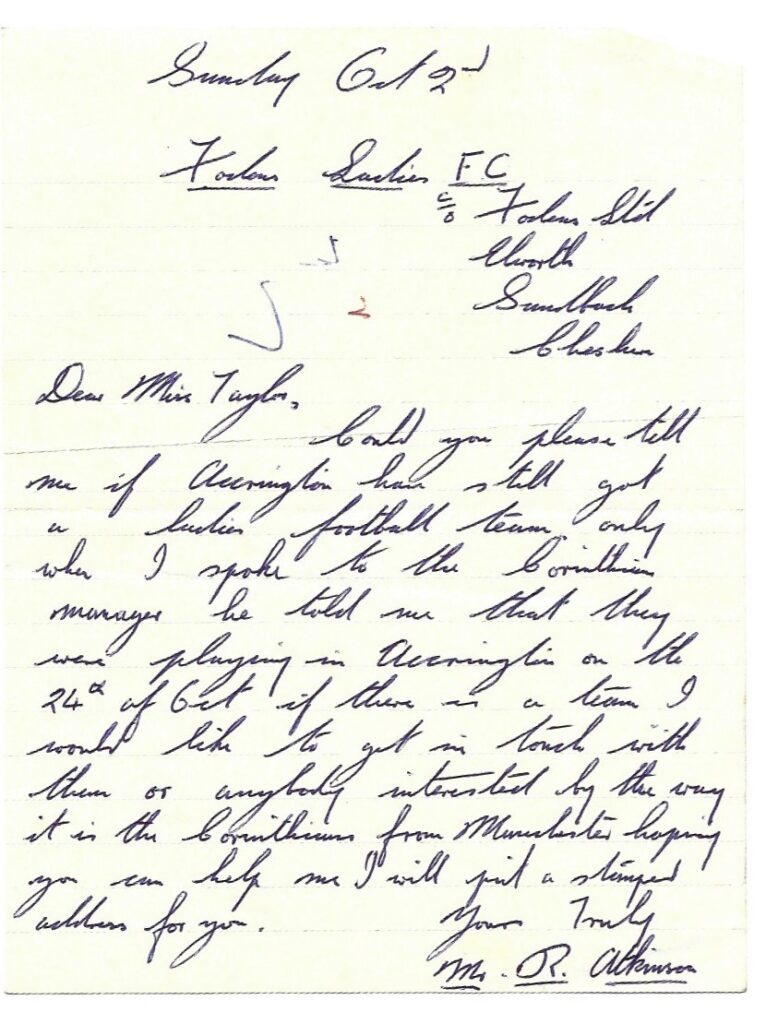 Sunday Oct 2nd
Fodens Ladies F C
c/o Fodens Ltd
Elworth
Sandbach
Cheshire
2
Dear Miss Taylor,
Could you please tell
me if Accrington have still got
a ladies football team only
when I spoke to the Corinthian
manager he told me that they
were playing in Accrington on the
24th of Oct if there is a team I
would like to get in touch with
them or anybody interested by the way
it is the Corinthians from Manchester hoping
you can help me I will put a stamped
address for you.
Yours Truly
Mr. R. Atkinson